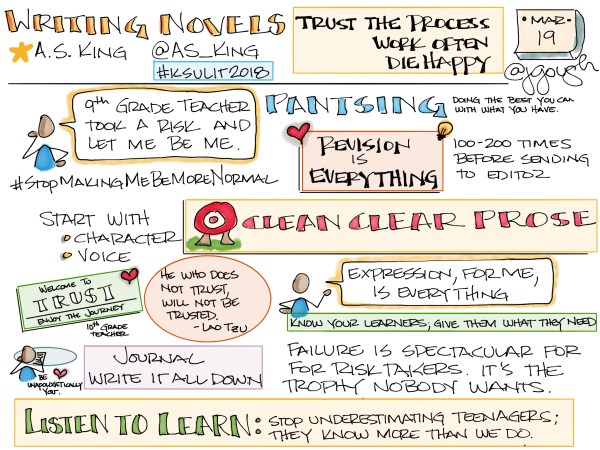 WRITING NOVELS
A.S. KING @AS_KING
#KSULIT2018
TRUST THE PROCESS
WORK OFTEN
DIE HAPPY
MAR.
19
@jgough
9th GRADE TEACHER
TOOK A RISK AND
LET ME BE ME.
#STOPMAKINGMEBEMORENORMAL
PANTSING
DOING THE BEST YOU CAN
WITH WHAT YOU HAVE.
REVISION
IS
EVERYTHING
100-200 TIMES
BEFORE SENDING
TO EDITOR
START WITH
CHARACTER
VOICE
CLEAN CLEAR PROSE
WELCOME TO
TRUST
ENJOY THE JOURNEY
10th GRADE
TEACHER
HE WHO DOES
NOT TRUST,
WILL NOT BE
TRUSTED.
- LAO TZU
EXPRESSION, FOR ME,
IS EVERYTHING
KNOW YOUR LEARNERS; GIVE THEM WHAT THEY NEED
BE
UNAPOLOGETICALLY
YOU.
JOURNAL
WRITE IT ALL DOWN
FAILURE IS SPECTACULAR FOR
FOR RISKTAKERS. IT'S THE
TROPHY NOBODY WANTS.
LISTEN TO LEARN: STOP UNDERESTIMATING TEENAGERS;
THEY KNOW MORE THAN WE DO.